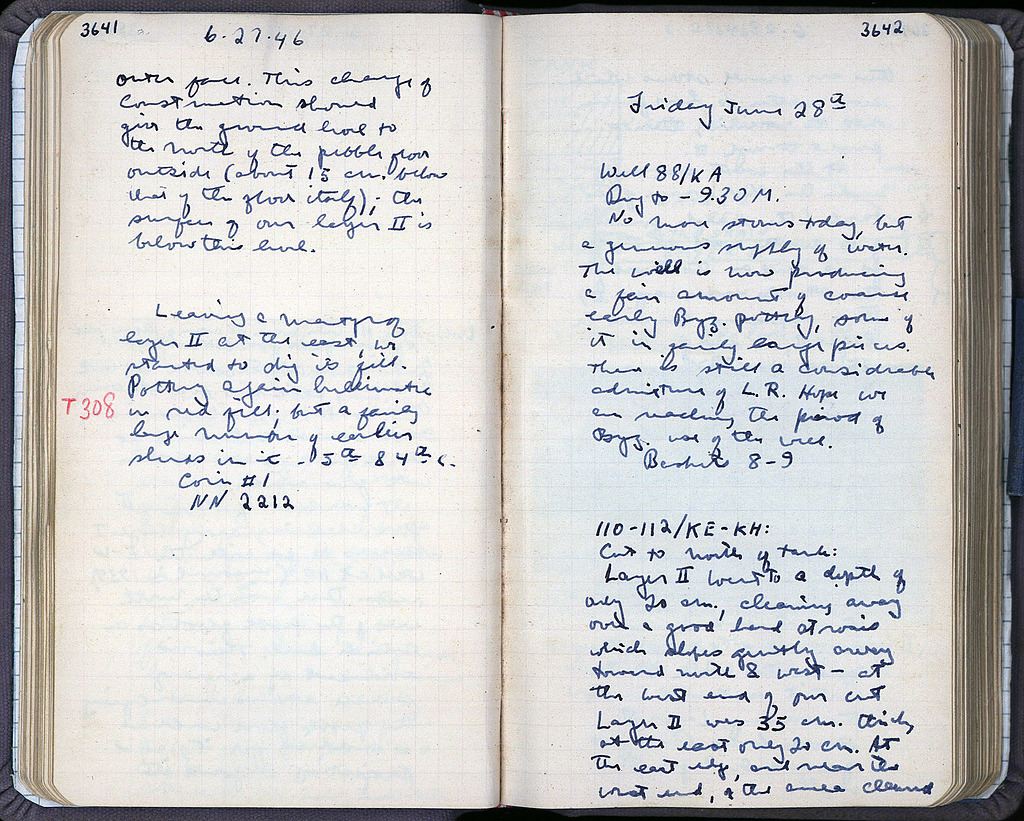 3641
6.27.46
outer face. This change of
construction should
give the ground level to
the north of the pebble floor
outside (about 15 cm. below
that of the floor itself); the
surface of our layer II is
below this level.
Leaving a martyr of
layer II at the east, we
started to dig its fill.
Pottery again Hellenistic
T 308
in red fill; but a fairly
large number of earlier
sherds in it - 5th & 4th c.
Coin #1
NN 2212
3642
Friday June 28th
Well 88/KA
Dug to - 9.30 M.
No more stones today, but
a generous supply of water.
The well is now producing
a fair amount of coarse
early Byz. pottery, some of
it in fairly large pieces.
There is still a considerable
admixture of L.R. Hope we
are reaching the period of
Byz. use of the well.
Baskets 8-9
110-112/KE-KH:
Cut to north of tank:
Layer II went to a depth of
only 20 cm., cleaning away
over a good hard stosis
which slopes gently away
toward north & west - at
the west end of our cut
Layer II was 35 cm. thick,
at the east only 20 cm. At
the east edge, and near the
west end, of the area cleared